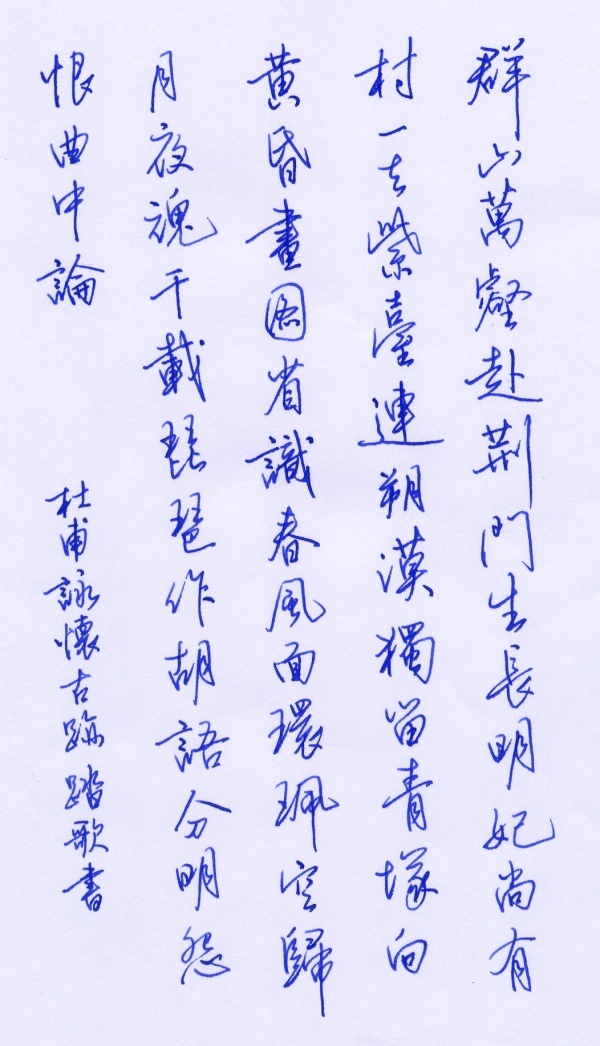 群山萬壑赴荆門生長明妃尚有
村一去紫臺連朔漠獨留青塚向
黃昏畫圖省識春風面環珮空歸
月夜魂千載琵琶作胡語分明怨
恨曲中論
杜甫詠懷古跡踏歌書